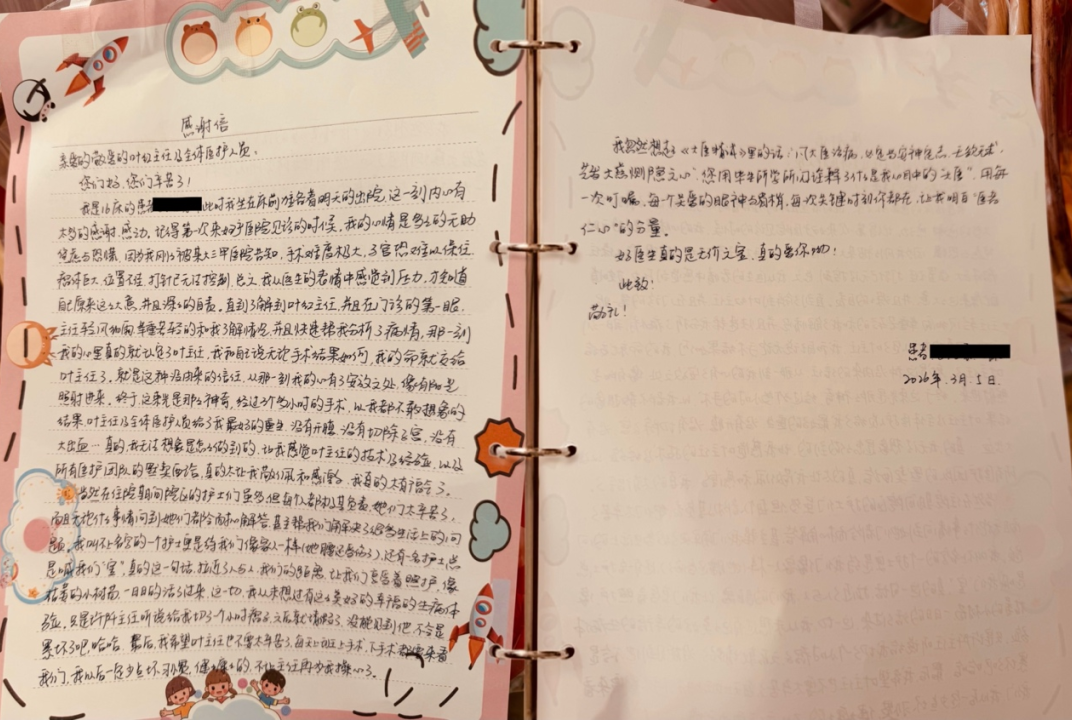 感谢信
亲爱的敬爱的叶红主任及全体医护人员。
您们好,您们辛苦了!
我是16床的患者 此时我坐在床前准备着明天的出院,这一刻内心有
太多的感谢,感动。记得第一次来妇产医院见诊的时候,我的心情是多么的无助
焦虑与恐惧,因为我同被某大三甲医院告知,手术难度极大,子宫恐难以保住
瘤体巨大,位置不佳,打针已无法控制,总之,我从医生的表情中感觉到压力,才知道
自己原来这么大意,并且深深的自责。直到了解到叶红主任,并且在门诊的第一眼,
主任轻声细语的和我了解情况,并且快速帮我分析了病情,那一刻
我的心里真的就认定了叶主任,我和自己说无论手术结果如何,我的命就交给
叶主任了,就是这种没由来的信任,从那一刻我的心有了安放之处,像有阳光
照射进来,终于这束光是那么神奇,经过3个多小时的手术,以我都不敢想象的
结果,叶主任及全体医护人员给了我最好的重生,没有开腹,没有切除子宫,没有
大出血…真的,我无法想象是怎么做到的,让我感觉叶主任的技术及经验,以及
所有医护团队的默契配合,真的太让我敬佩和感谢了,我真的太有福气了。
当然在住院期间院区的护士们虽然 但每个都极其负责,她们太辛苦了,
而且无论什么事情问到她们都会耐心解答,甚至帮我们解决了很多生活上的问
题。我叫不上名的一个护士更是给我们像家人一样(她腰还受伤了),还有一名护士,总
是喊我们“宝”,真的这一句话,拉近了人与人,我们的距离,让我们享受着照护,像
枯萎的小树苗一日日的活了过来,这一切,我从未想过有这么美好的幸福的生病体
验,只是许阡主任听说给我切了个小时瘤子,之后就休息了,没能见到他,不会是
累坏了吧,哈哈。最后,我希望叶主任也不要太辛苦了,每天上班上手术,下手术都来看
我们,我以后一定少点坏习惯,健健康康的,不让主任再为我操心了。
我忽然想起《大医精诚》里的话:“凡大医治病,必当安神定志,无欲无求,
先发大慈恻隐之心”,您用毕生所学所阅诠释了什么是我心目中的“大医”,用每
一次叮嘱,每个关爱的眼神与肩膀,每次关键时刻你都在,让我明白“医者
仁心”的分量。
好医生真的是无价之宝,真的爱你哟!
此致!
敬礼!
患者
2026年.3月.5日.